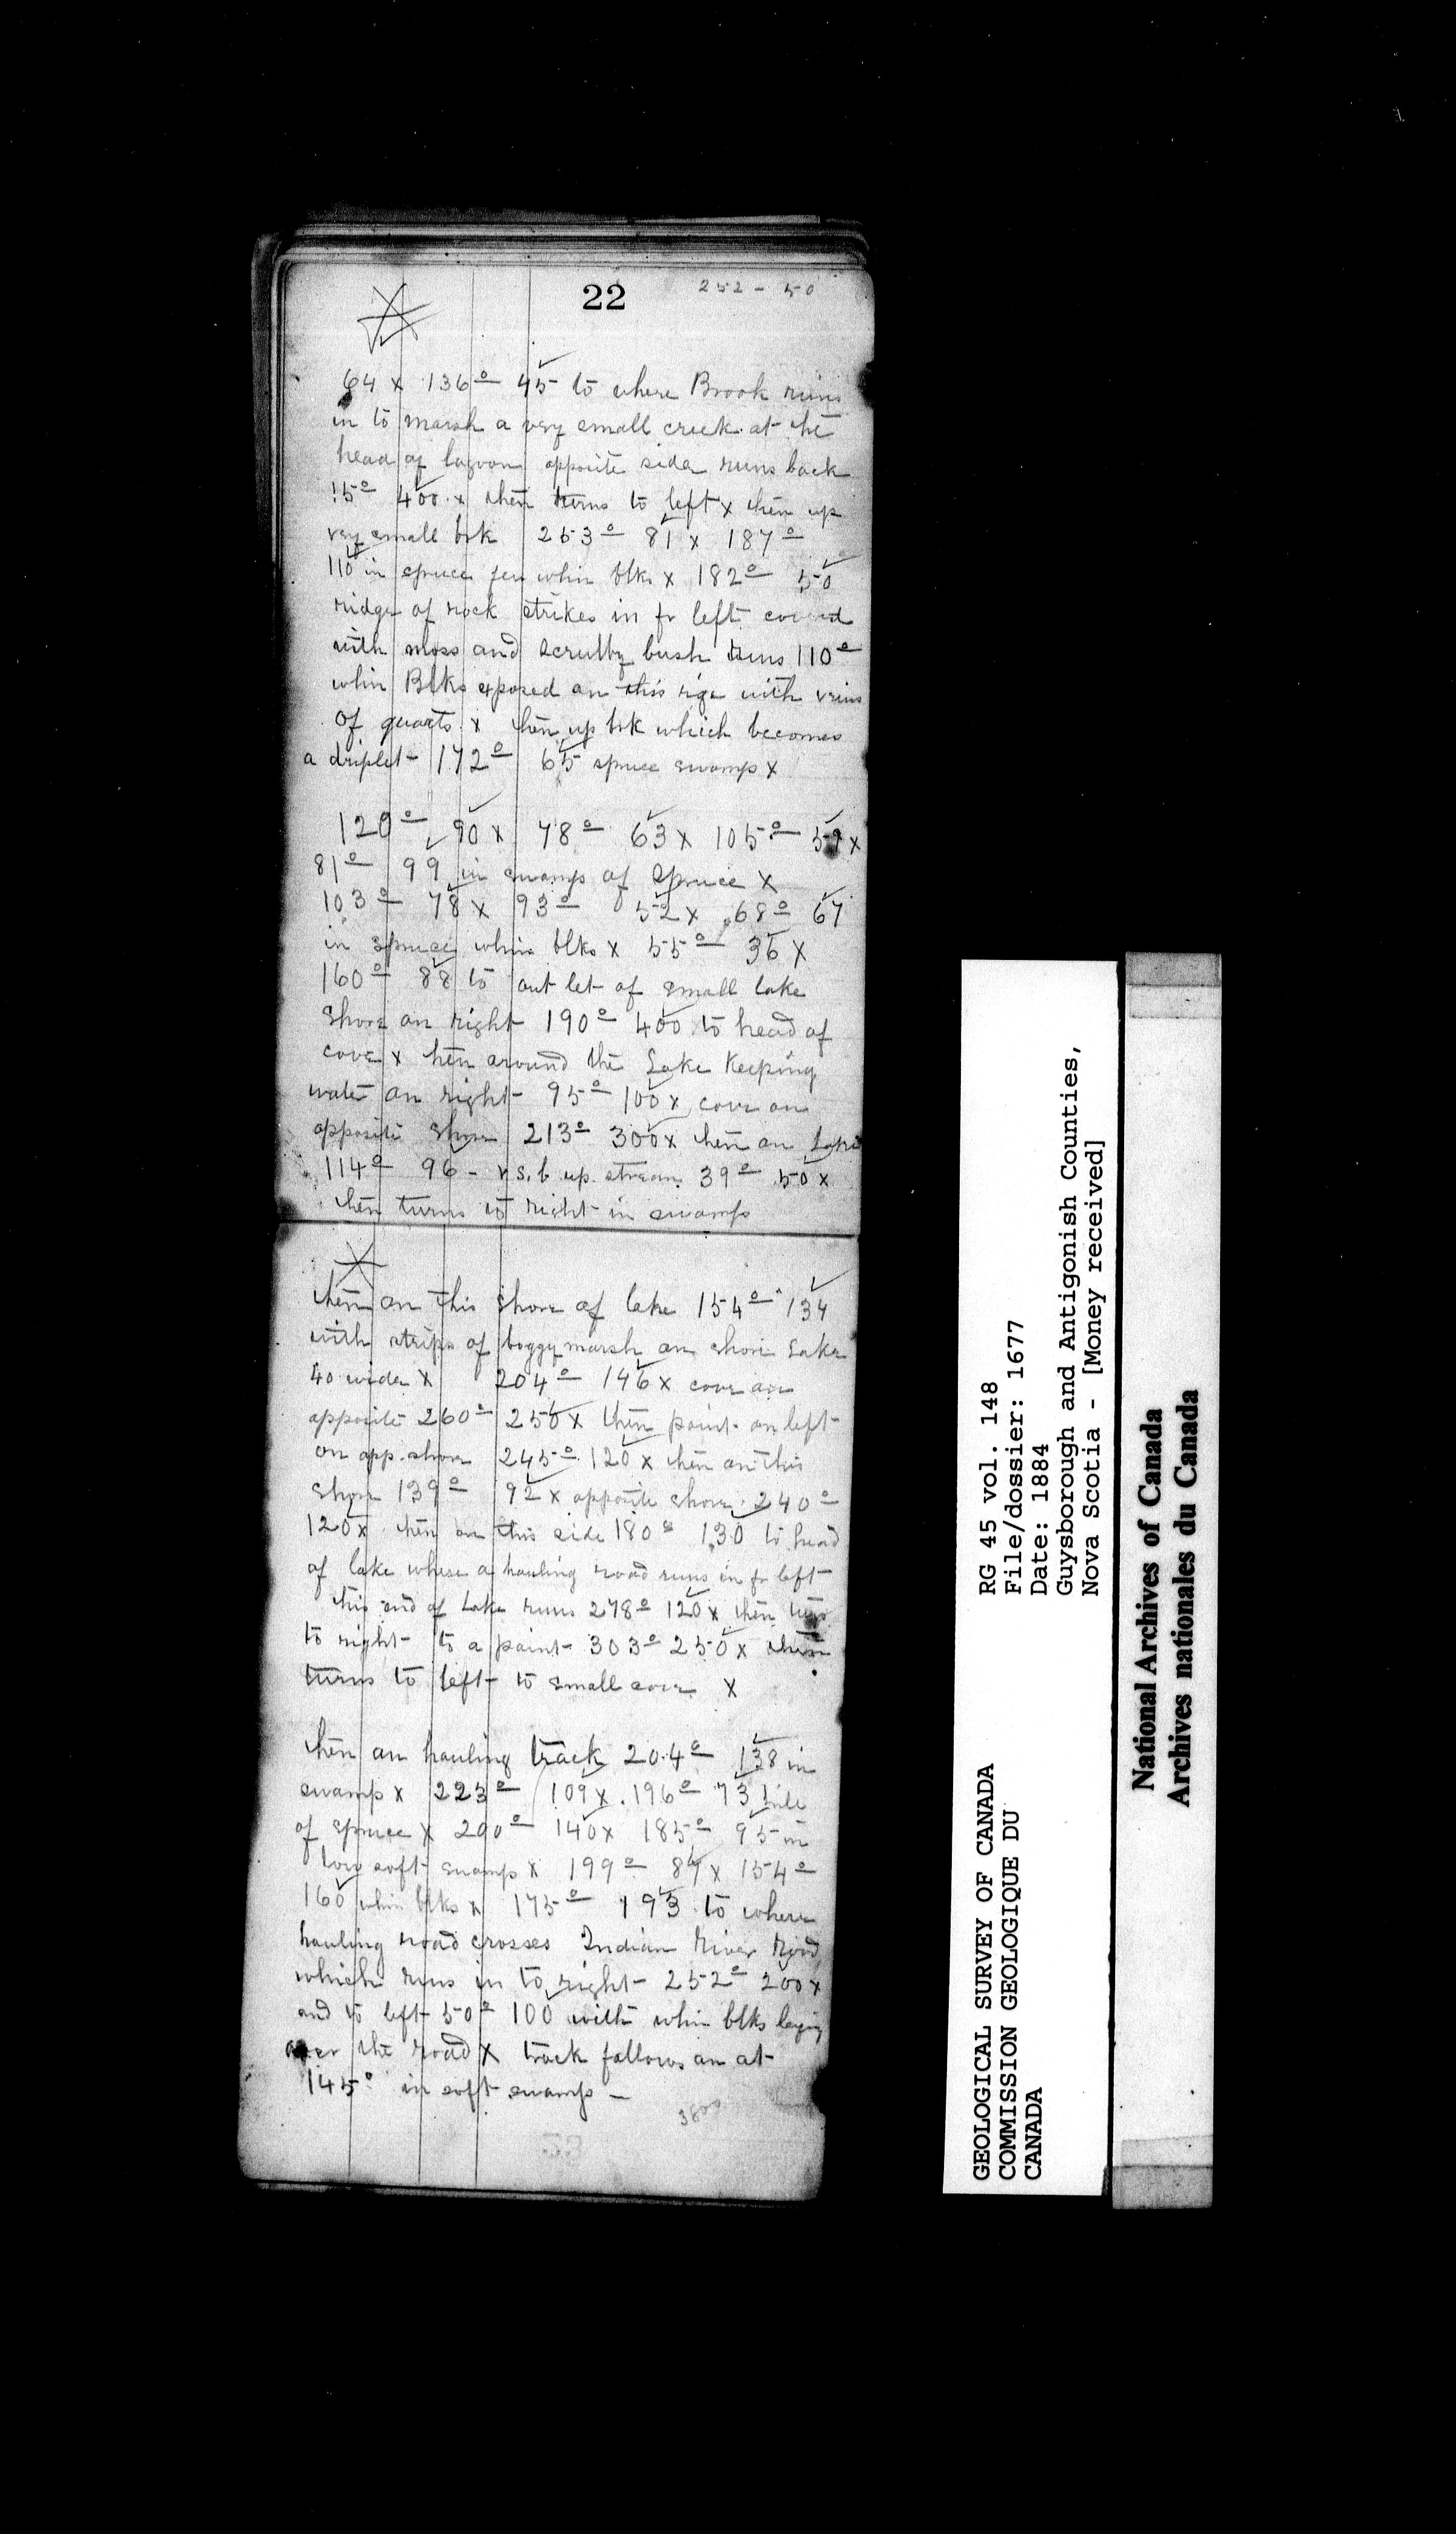 22
252 - 50
64 x 136° 45 to where Brook runs
in to marsh a very small creek at the
head of lagoon opposite side runs back
15° 400 x then turns to left x then up
very small brk 253° 81 x 187°
110 in spruce few whin blks x 182° 50
ridge of rock strikes in fr left covered
with moss and scrubby bush runs 110°
whin Blks exposed on this rige with veins
of quarts x then up brk which becomes
a driplet 172° 65 spruce swamp x
120° 90 x 78° 63 x 105° 59 x
81° 99 in swamp of Spruce x
103° 78 x 93° 52 x 68° 67
in spruce whin blks x 55° 36 x
160° 88 to out let of small lake
Shore on right 190° 400 to head of
cove x then around the Lake Keeping
water on right 95° 100 x cove on
opposite shore 213° 300 x then on
114° 96 - v s. b up stream 39° 50 x
then turns to right in swamp
then on this shore of lake 154° 134
with strips of boggy marsh on shore Lake
40 wide x 204° 146 x cove on
opposite 260° 250 x then point on left
on opp. shore 245° 120 x then on this
shore 139° 92 x opposite shore 240°
120 x then on this side 180° 130 to head
of lake where a hauling road runs in fr left
this end of Lake runs 278° 120 x then
to right to a point 303° 250 x then
turns to left to small cove x
then on hauling track 204° 138 in
swamp x 223° 109 x 196° 73
of spruce x 200° 140 x 185° 95 in
low soft swamp x 199° 87 x 154°
160 whin blks x 175° 193 to where
hauling road crosses Indian River Road
which runs in to right 252° 200 x
and to left 50° 100 with whin blks laying
over the road x track follows on at
145° in soft swamp -
GEOLOGICAL SURVEY OF CANADA
COMMISSION GEOLOGIQUE DU
CANADA
RG 45 vol. 148
File/dossier: 1677
Date: 1884
Guysborough and Antigonish Counties,
Nova Scotia - [Money received]
National Archives of Canada
Archives nationales du Canada